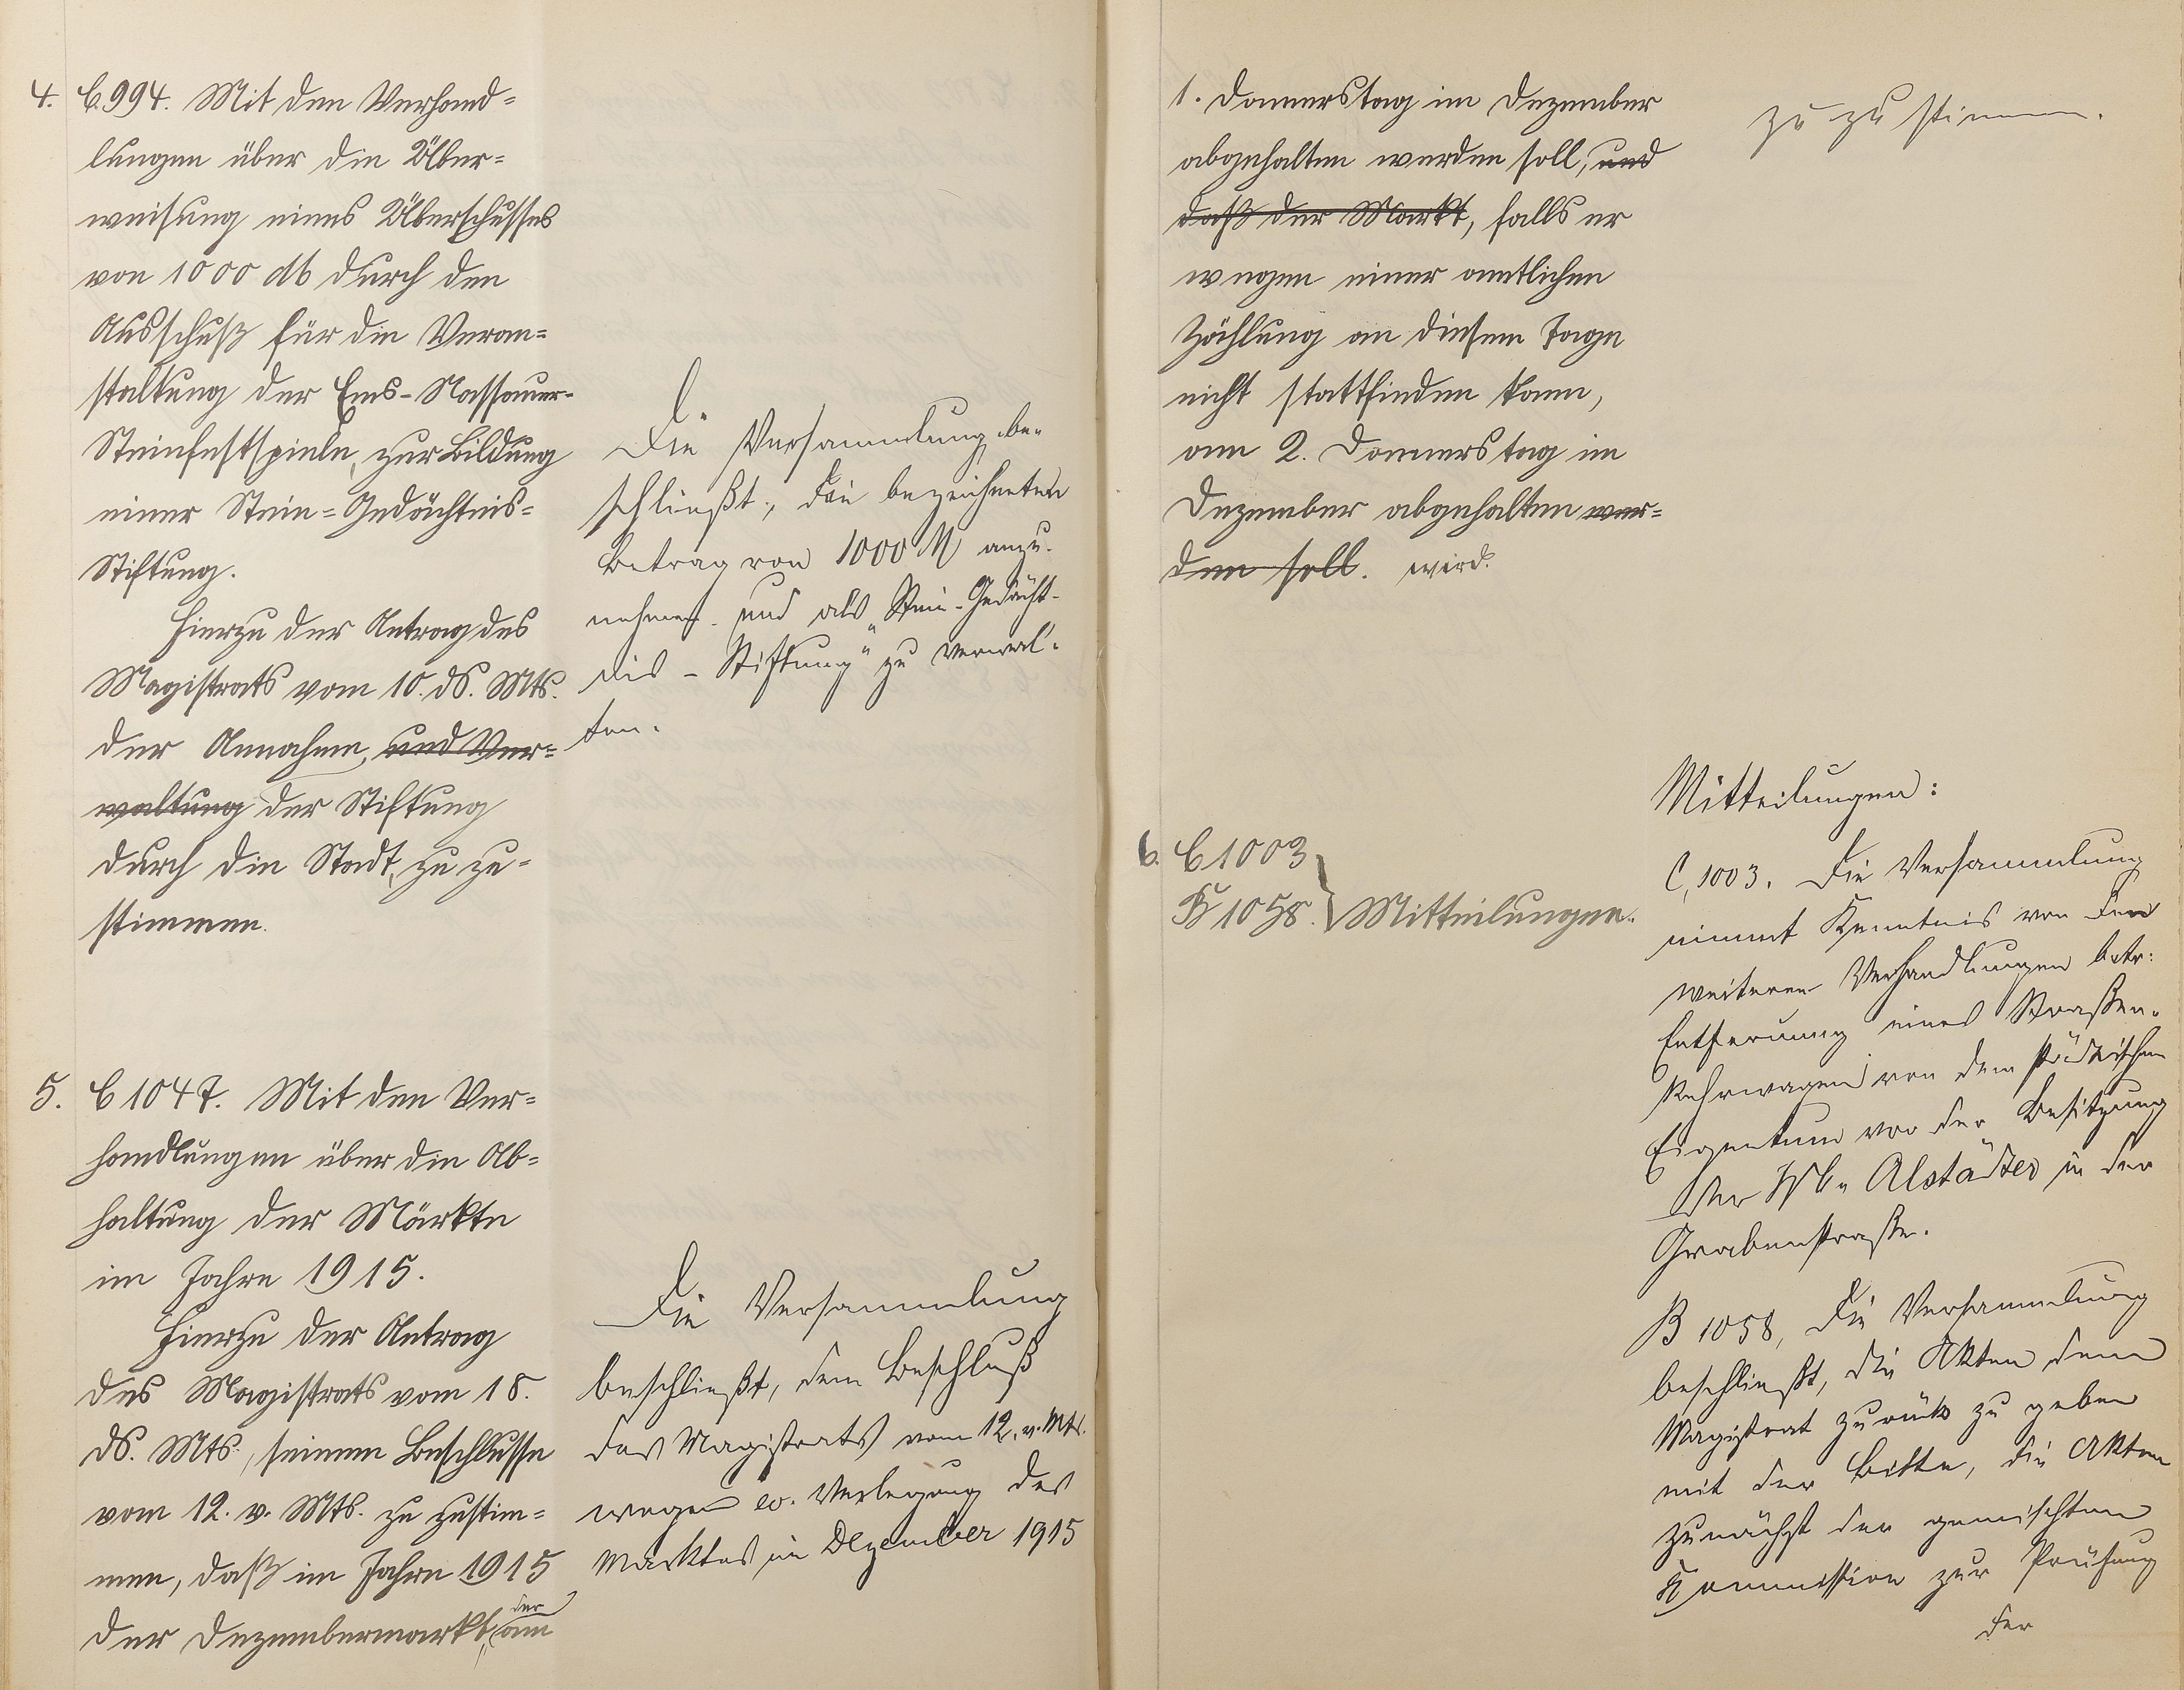 4. C. 994. Mit den Verhand-
lungen über die Über-
weisung eines Überschusses
von 1000 M durch den
Ausschuß für die Veran-
staltung der Ems-Nassauer-
Steinfestspiele, zur Bildung
einer Stein-Gedächtnis-
Stiftung.
Hierzu der Antrag des
Magistrats vom 10. ds. Mts.
der Annahme, und Ver-
waltung der Stiftung
durch die Stadt, zu zu-
stimmen.
Die Versammlung be-
schließt, die bezeichneten
Betrag von 1000 M anzu-
nehmen und als „Stein-Gedächt-
nis-Stiftung" zu verwal-
ten.
5. C 1047. Mit den Ver-
handlungen über die Ab-
haltung der Märkte
im Jahre 1915.
Hierzu der Antrag
des Magistrats vom 18.
ds. Mts., seinem Beschlusse
vom 12. v. Mts. zu zustim-
men, daß im Jahre 1915
der Dezembermarkt, der am
Die Versammlung
beschließt, dem Beschluß
des Magistrats vom 12. v. Mts.
wegen ev. Verlegung des
Marktes im Dezember 1915
1. Donnerstag im Dezember
abgehalten werden soll, und
daß der Markt, falls er
wegen einer amtlichen
Zählung an diesem Tage
nicht stattfinden kann,
am 2. Donnerstag im
Dezember abgehalten wer-
den soll. wird.
zu zu stimmen.
6. C 1003
B 1058. } Mitteilungen.
Mitteilungen:
C. 1003. Die Versammlung
nimmt Kenntnis von den
weiteren Verhandlungen betr:
Entfernung eines Straßen-
kehrwagens von dem städtischen
Eigentum vor der Besitzung
der Alstädter in der
Grabenstraße.
B 1058, Die Versammlung
beschließt, die Akten dem
Magistrat zurück zu geben
mit der Bitte, die Akten
zunächst der gemischten
Kommission zur Prüfung
der